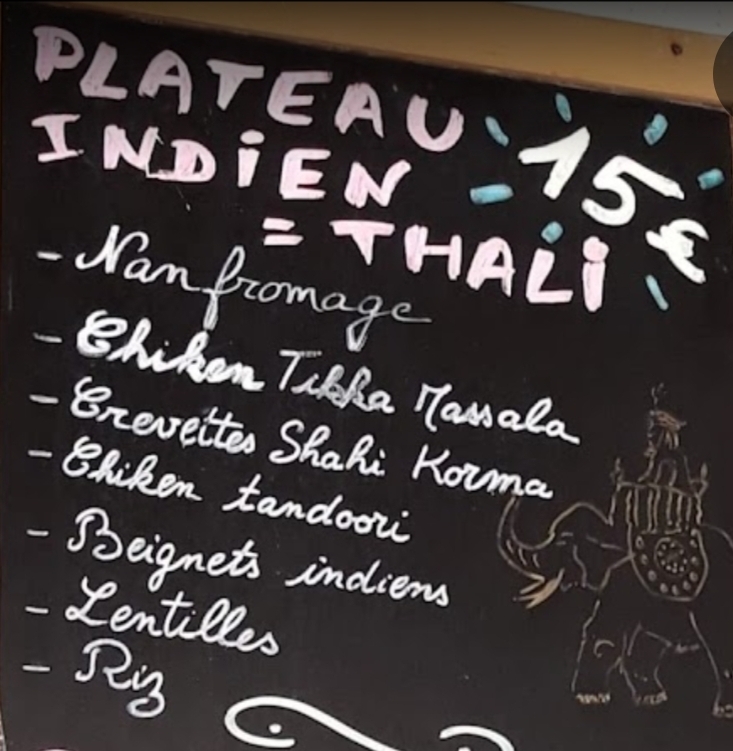 PLATEAU
INDiEN 15€
= THALi
- Nan fromage
- Chiken Tikka Massala
- Crevettes Shahi Korma
- Chiken tandoori
- Beignets indiens
- Lentilles
- Riz